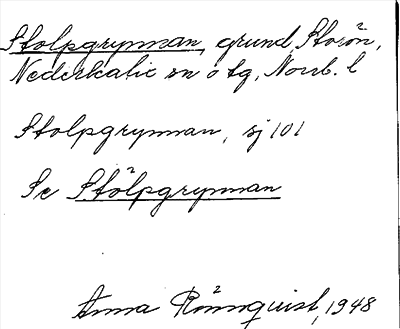 Stolpgrynnan, grund, Storön,
Nederkalix sn o tg, Norrb. l
Stolpgrynnan, sj 101
Se Stölpgrynnan
Anna Rönnquist, 1948